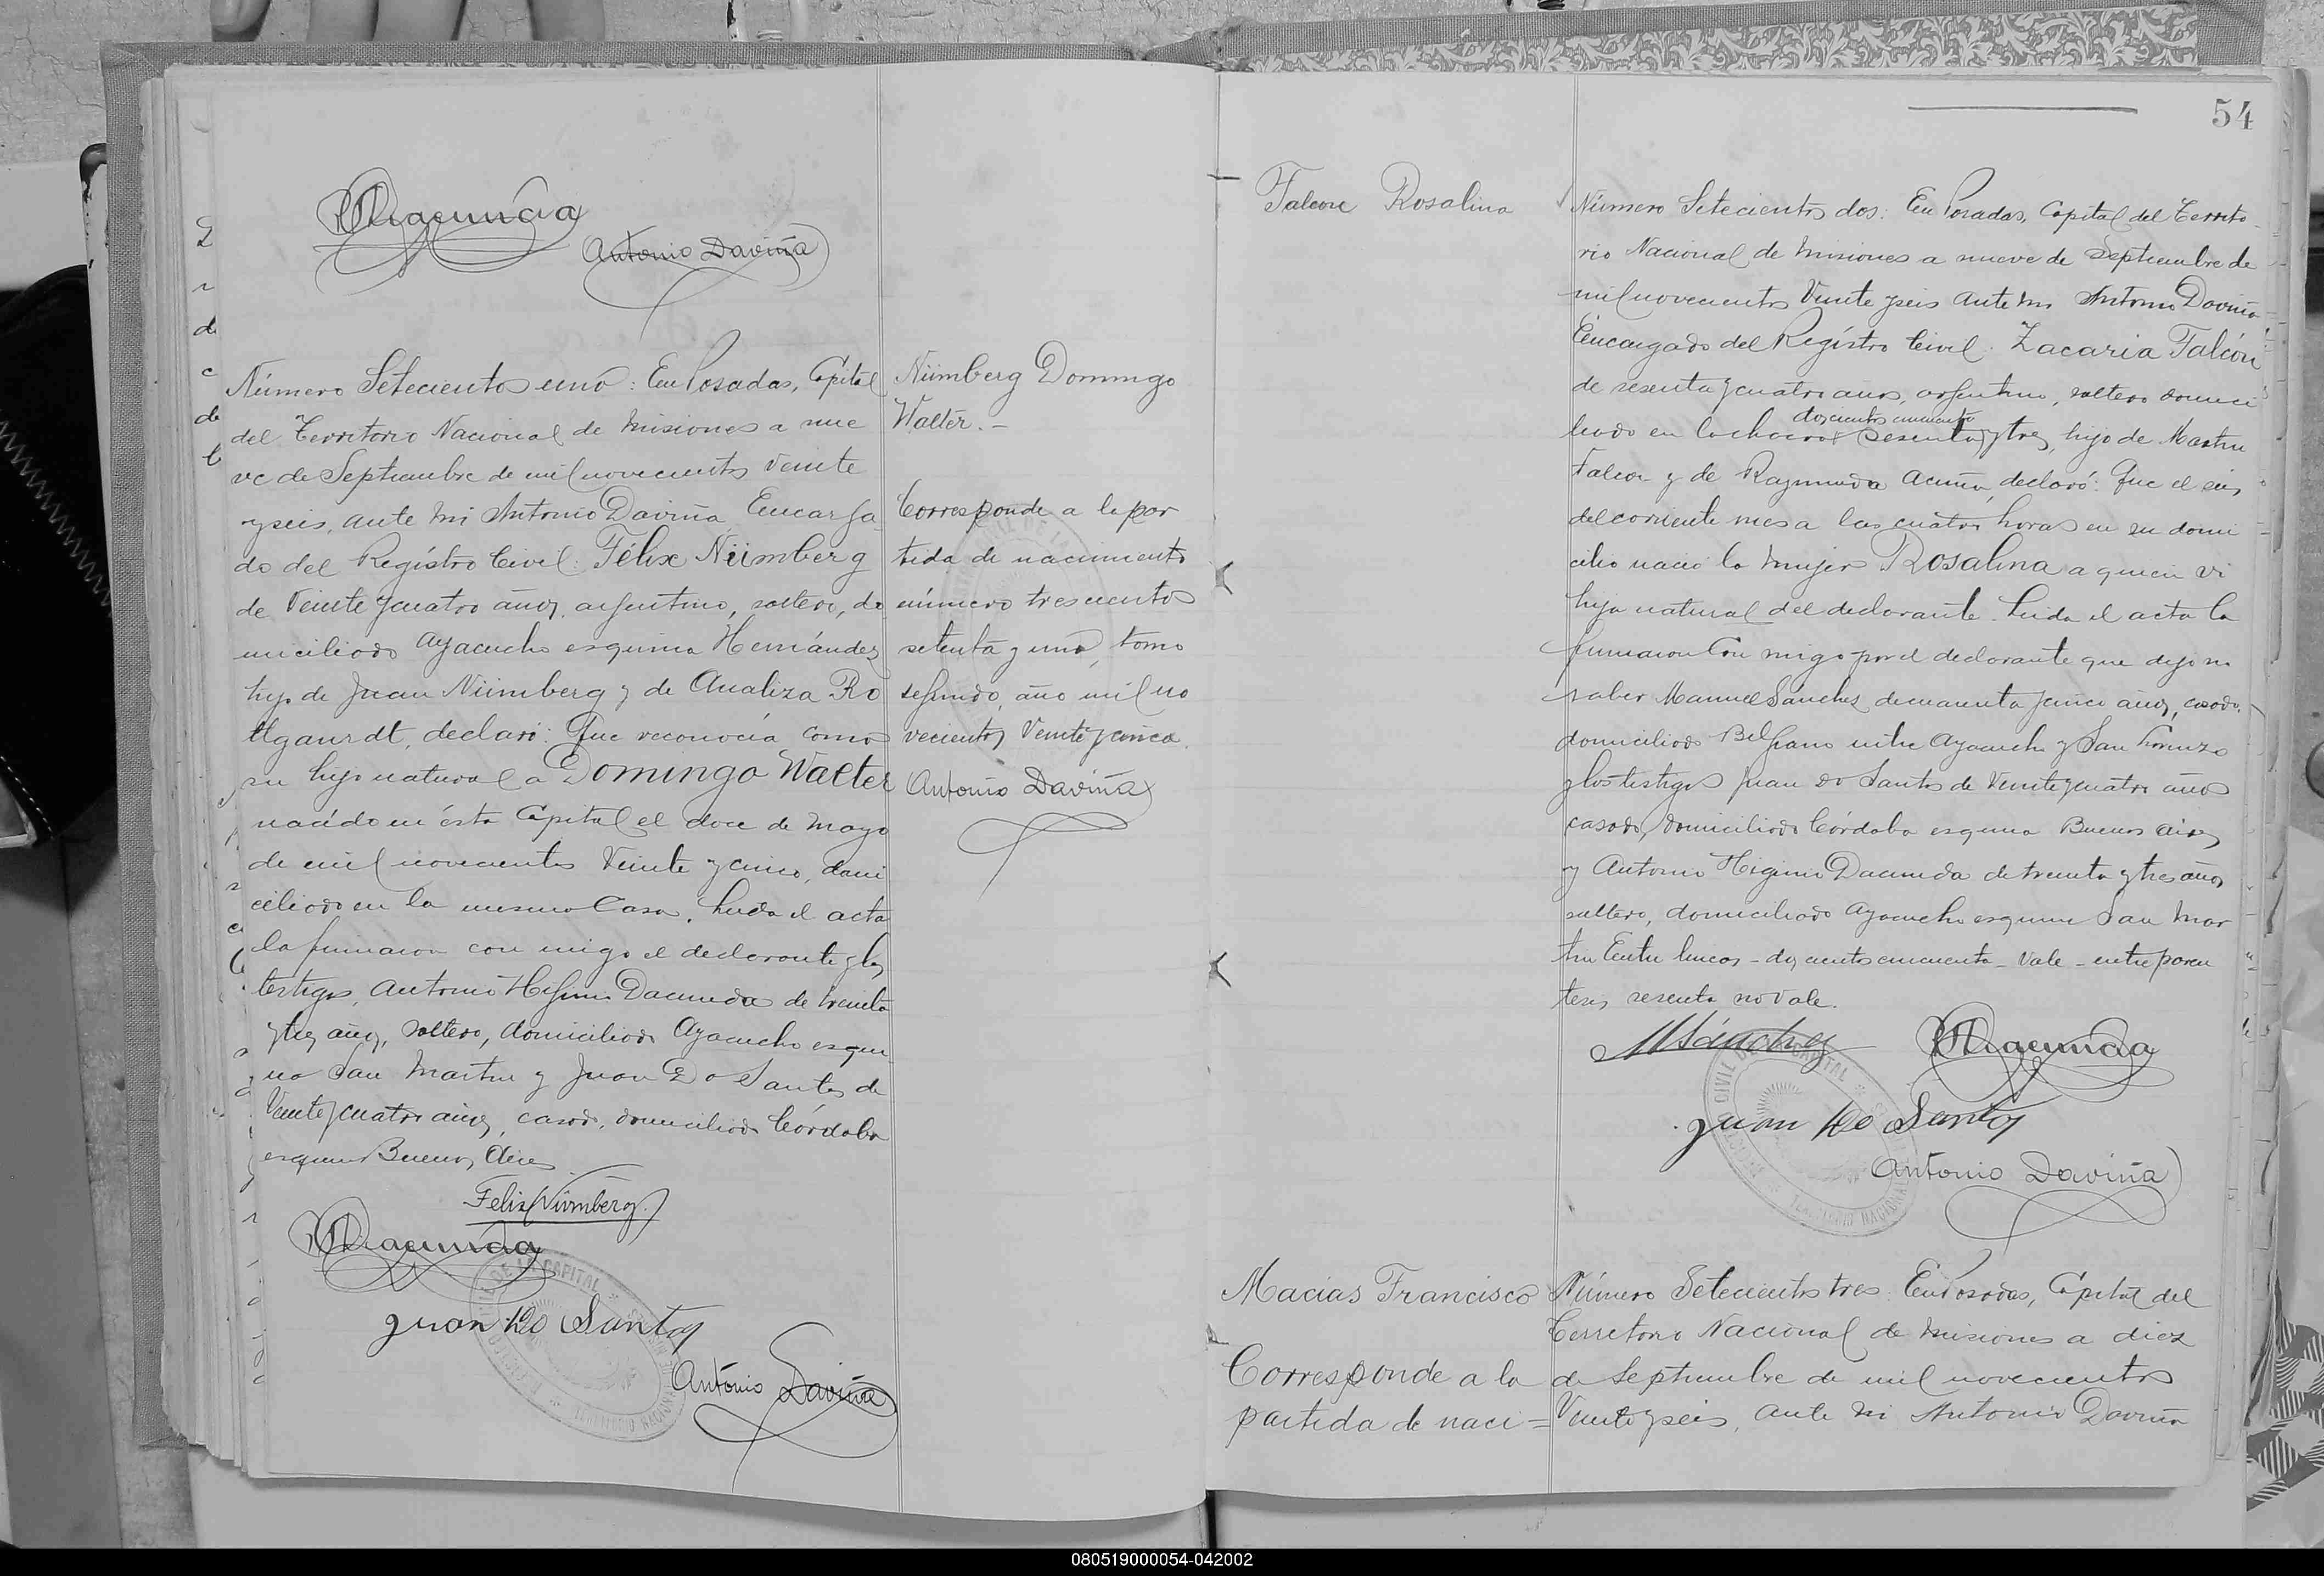 HDacunda
Antonio Daviña
Número Setecientos uno: En Posadas, Capital
del Territorio Nacional de Misiones a nue
ve de Septiembre de mil novecientos veinte
y seis, ante mi Antonio Daviña, Encarga
do del Registro Civil: Félix Nürnberg
de veinte y cuatro años, argentino, soltero, do
miciliado Ayacucho esquina Hernández
hijo de Juan Nürnberg y de Analiza Ro
thgaurdt, declaró: Que reconocía como
su hijo natural a Domingo Walter
nacido en ésta Capital el doce de Mayo
de mil novecientos veinte y cinco, domi
ciliado en la misma Casa. Leida el acta
la firmaron con migo el declarante y los
testigos, Antonio Higinio Dacunda de treinta
y tres años, soltero, domiciliado Ayacucho esqui
na San Martin y Juan Do Santos de
veinte y cuatro años, casado, domiciliado Córdoba
esquina Buenos Aires
Felix Nürnberg
HDacunda
Juan Do Santos
Antonio Daviña
Nürnberg Domingo
Walter.-
Corresponde a la par
tida de nacimiento
número trescientos
setenta y uno, tomo
segundo, año mil no
vecientos veinte y cinco.
Antonio Daviña
54
Falcon Rosalina
Número Setecientos dos: En Posadas, Capital del Territo-
rio Nacional de Misiones a nueve de Septiembre de
mil novecientos veinte y seis ante mi Antonio Daviña
Encargado del Registro Civil: Zacaria Falcón
de sesenta y cuatro años, argentino, soltero domici
doscientos cincuenta
liado en la chacra (sesenta) y tres, hijo de Martin
Falcon y de Raymunda Acuña, declaró: Que el seis
del corriente mes a las cuatro horas en su domi
cilio nació la mujer Rosalina a quien vi
hija natural del declarante. Leida el acta la
firmaron Con migo por el declarante que dijo no
saber Manuel Sanchez de cuarenta y cinco años, casado,
domiciliado Belgrano entre Ayacucho y San Lorenzo
y los testigos Juan Do Santos de veinte y cuatro años
casado, domiciliado Córdoba esquina Buenos Aires
y Antonio Higinio Dacunda de treinta y tres años
soltero, domiciliado Ayacucho esquina San Mar
tin Entre lineas - doscientos cincuenta - Vale - entre paren
tesis sesenta no Vale.
MSánchez
HDacunda
Juan Do Santos
Antonio Daviña
Macias Francisco
Corresponde a la
partida de naci=
Número Setecientos tres: En Posadas, Capital del
Territorio Nacional de Misiones a diez
de Septiembre de mil novecientos
Veinte y seis, ante mi Antonio Daviña
080519000054-042002